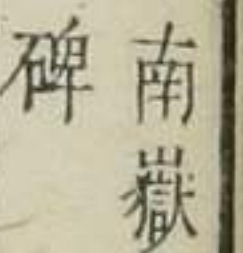 南嶽
碑